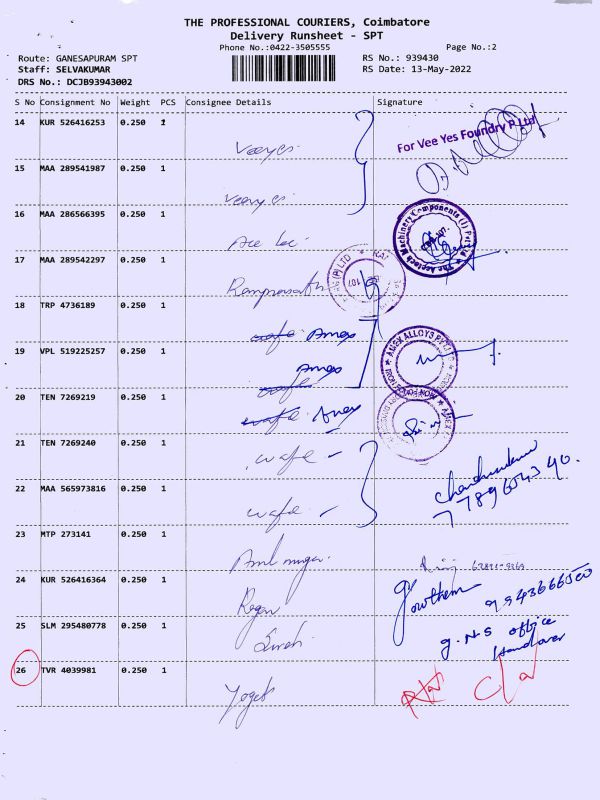 THE PROFESSIONAL COURIERS, Coimbatore
Delivery Runsheet - SPT
Phone No.:0422-3505555
Page No.:2
Route: GANESAPURAM SPT
RS No.: 939430
Staff: SELVAKUMAR
RS Date: 13-May-2022
DRS No.: DCJB93943002
S No Consignment No Weight PCS Consignee Details Signature
14 KUR 526416253 0.250 1
For Vee Yes Foundry P Ltd
15 MAA 289541987 0.250 1
16 MAA 286566395 0.250 1
17 MAA 289542297 0.250 1
18 TRP 4736189 0.250 1
Amex
19 VPL 519225257 0.250 1
Amex
20 TEN 7269219 0.250 1
Amex
21 TEN 7269240 0.250 1
wafe
22 MAA 565973816 0.250 1
wafe
23 MTP 273141 0.250 1
24 KUR 526416364 0.250 1
Gowthem
9943666500
25 SLM 295480778 0.250 1
G.N.S office
Handover
26 TVR 4039981 0.250 1